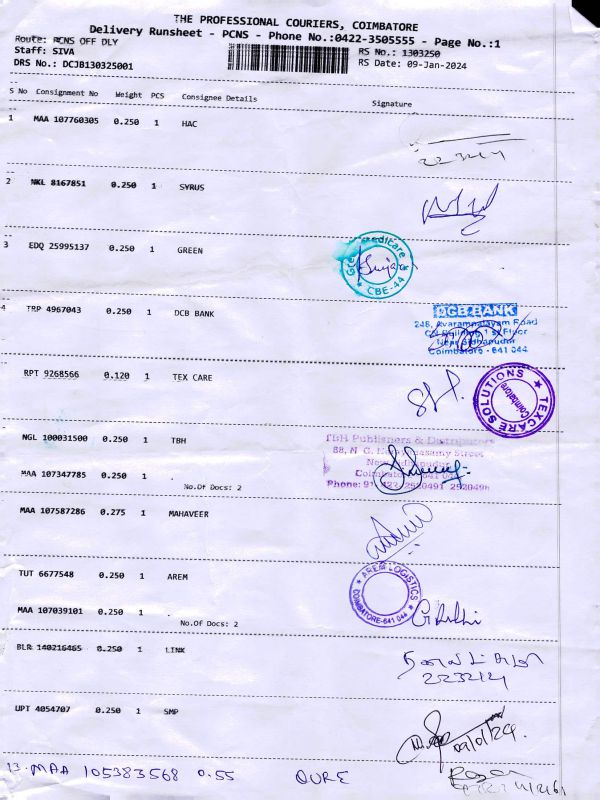 THE PROFESSIONAL COURIERS, COIMBATORE
Delivery Runsheet - PCNS - Phone No.:0422-3505555 - Page No.:1
Route: PCNS OFF DLY
RS No.: 1303250
Staff: SIVA
RS Date: 09-Jan-2024
DRS No.: DCJB130325001
S No Consignment No Weight PCS Consignee Details Signature
1 MAA 107760305 0.250 1 HAC
2 NKL 8167851 0.250 1 SYRUS
3 EDQ 25995137 0.250 1 GREEN
CBE-44
4 TRP 4967043 0.250 1 DCB BANK
DCB BANK
248, Avarampalayam Road
Coimbatore - 641 044
RPT 9268566 0.120 1 TEX CARE
TEXCARE SOLUTIONS
Coimbatore
NGL 100031500 0.250 1 TBH
TBH Publishers & Distributors
MAA 107347785 0.250 1 No.Of Docs: 2
MAA 107587286 0.275 1 MAHAVEER
TUT 6677548 0.250 1 AREM
AREM LOGISTICS
COIMBATORE-641 044
MAA 107039101 0.250 1 No.Of Docs: 2
BLR 140216465 0.250 1 LINK
UPT 4054707 0.250 1 SMP
09/01/24
13. MAA 105383568 0.55 QURE